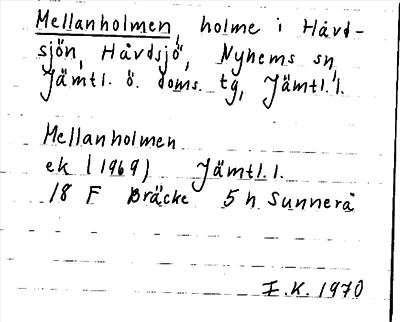 Mellanholmen, holme i Håvd-
sjön, Håvdsjö, Nyhems sn,
Jämtl. ö. doms. tg, Jämtl. l.
Mellanholmen
ek (1969) Jämtl. l.
18 F Bräcke 5 h Sunnerå
I.K. 1970